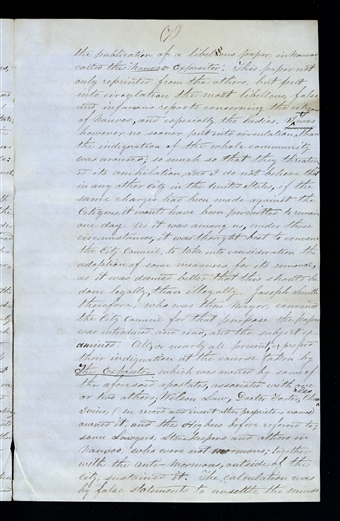 (7)
the publication of a libelous paper in Nauvoo
called the Nauvoo Expositor. This paper not
only reprinted from the others but put
into circulation the most libellous, false
and infamous reports concerning the citizens
of Nauvoo, and especially the ladies. It was
however no sooner put into circulation than
the indignation of the whole community
was aroused; so much so that they threatened
its annihilation, and I do not believe that
in any other city in the United States, if the
same charges had been made against the
citizens it would have been permitted to remain
one day. As it was among us, under these
circumstances, it was thought best to convene
the City Council, to take into consideration the
adoption of some measures for its removal,
as it was deemed better that this should be
done legally, than illegally. Joseph Smith
therefore, who was then Mayor, convened
the City Council for that purpose the paper
was introduced and read, and the subject of
All, or nearly all present, expressed
their indignation at the course taken by
The Expositor, which was owned by some of
the aforesaid apostates, associated with one
or two others, Wilson Law, Doctor Foster,
owned it, and the Higbees before referred to,
some Lawyers, Storekeepers and others in
Nauvoo who were not mormons; together
with the anti-Mormons, outside of the
city, sustained it. The calculation was
by false statements to unsettle the minds